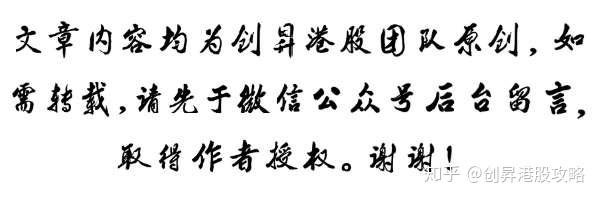 文章内容均为创昇港股团队原创，如
需转载，请先于微信公众号后台留言，
取得作者授权。谢谢！
知乎 @创昇港股攻略